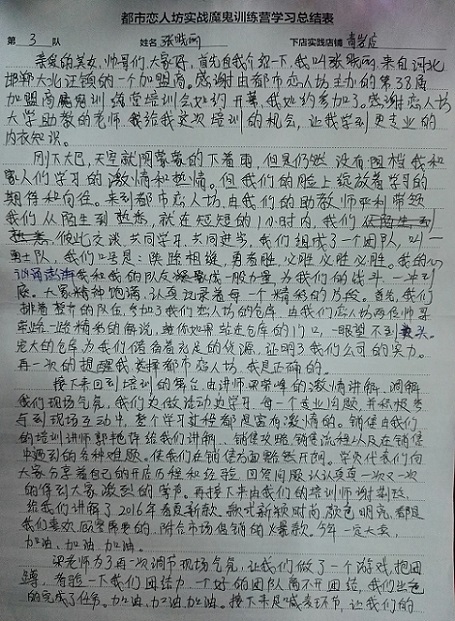 都市恋人坊实战魔鬼训练营学习总结表
第 3 队 姓名 张晓丽 下店实践店铺 青岩庄
亲爱的美女,帅哥们大家好,首先自我介绍一下,我叫张晓丽来自河北
邯郸大北汪镇的一个加盟商。感谢由都市恋人坊主办的第38届
加盟商 培训 培训会如约开幕,我如约参加了。感谢恋人坊
大学助教的老师 给我这次培训的机会,让我学到更专业的
内衣知识。
刚下大巴,天空就阴蒙蒙的下着雨,但是仍然没有阻档我和
家人们学习的激情和热情。但我们的脸上绽放着学习的
期待和向往。来到都市恋人坊,由我们的助教师 带领
我们从陌生到熟悉,就在短短的1小时内,我们
彼此交谈,共同学习,共同进步,我们组成了一个团队,叫
勇士队,我们口号是:狭路相逢,勇者胜,必胜必胜必胜。我的心
我和我的队友凝聚成一股力量,为我们的战斗一冲到
底。大家精神饱满,认真记录着每一个精彩的片段。首先,我们
排着整齐的队伍,参加了我们恋人坊的仓库,由我们恋人坊两位师哥
带给一路精彩的解说,当你如果站在仓库的门口,一眼望不到头。
庞大的仓库为我们储备着充足的货源,证明了我们公司的实力。
再一次的提醒我选择都市恋人坊,我是正确的。
接下来回到培训的舞台,由讲师 的激情讲解,调解
我们现场气氛,我们边做活动边学习,每一个专业问题,并积极参
与到现场互动中,整个学习过程都是富有激情的。销售由我们
的培训讲师 给我们讲解。销售攻略,销售流程以及在销售
中遇到的各种难题。使我们在销售方面豁然开朗。学员代表们向
大家分享着自己的开店历程和经验,回答问题认认真真一次又一次
的得到大家激烈的掌声。再接下来由我们的培训师谢
给我们讲解了2016年春夏新款。款式新颖时尚颜色明亮,都是
我们喜欢 需要的,附合市场促销的爆款。今年一定大卖,
加油,加油,加油。
梁老师为了再一次调节现场气氛,让我们做了一个游戏,抱团
,考验一下我们团结力,一个好的团队离不开团结,我们出色
的完成了任务。加油,加油,加油。接下来是喊麦环节,让我们的